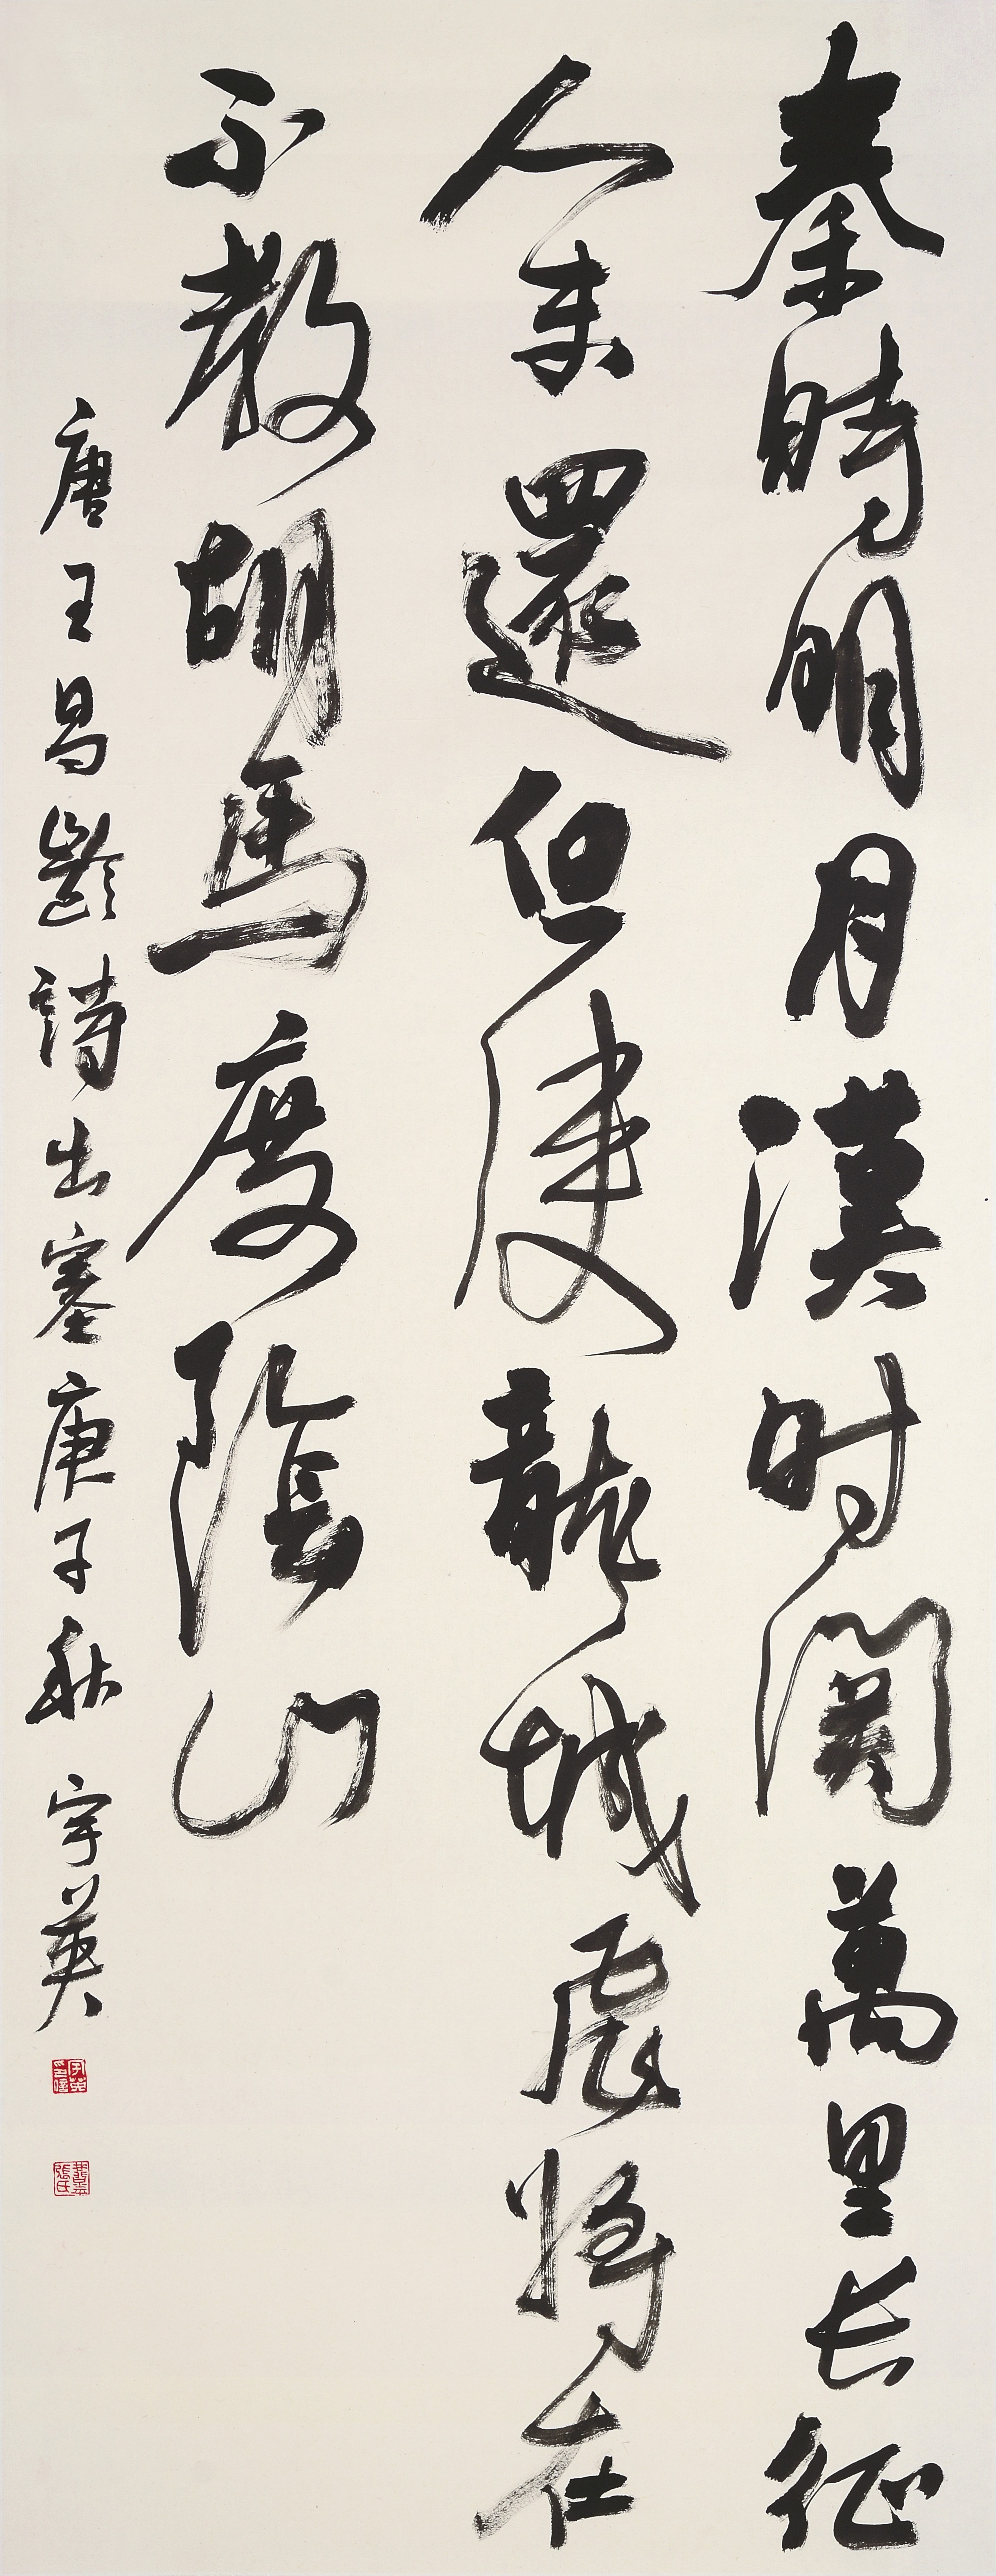 秦時明月漢时関萬里长征
人未還但使龍城飛將在
不教胡馬度陰山
唐王昌齡詩出塞庚子秋 宇英